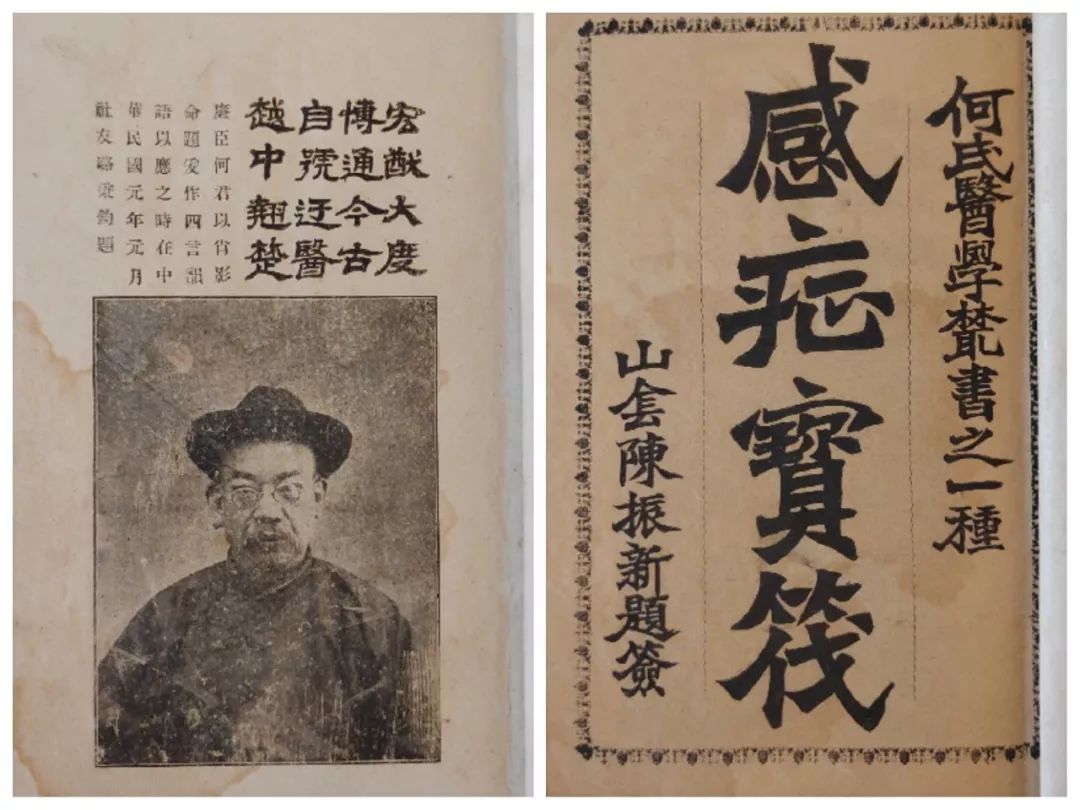 宏猷大度
博通今古
自號迂醫
越中翹楚
廉臣何君以肖影
命題爰作四言韻
語以應之時在中
華民國元年元月
社友駱秉鈞題
何氏醫學叢書之一種
感症寶筏
山套陳振新題簽